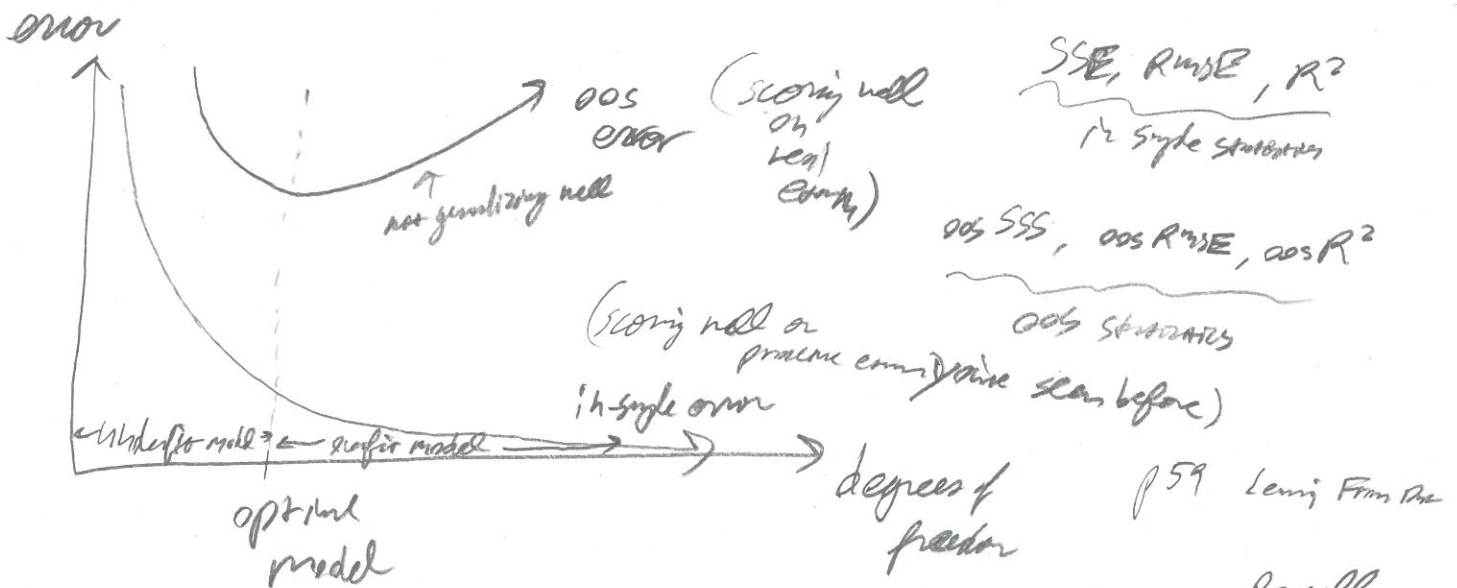 error
oos
error
(scoring well
on
real
exam)
SSE, RMSE, R²
in sample statistics
not generalizing well
oos SSS, oos RMSE, oos R²
oos statistics
(scoring well on
practice exams you've seen before)
in-sample error
underfit model
overfit model
degrees of
freedom
optimal
model
p59 Learning From Data